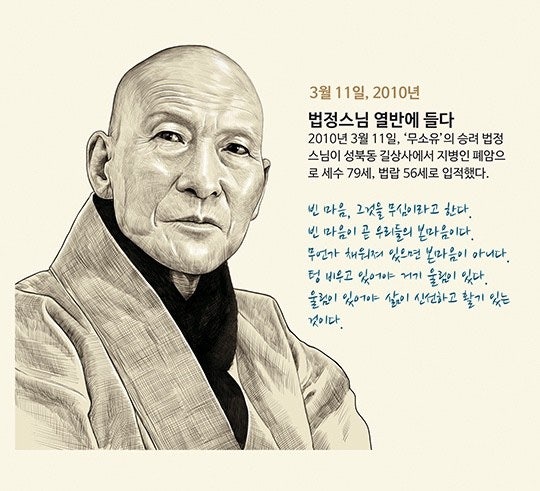 3월 11일, 2010년
법정스님 열반에 들다
2010년 3월 11일, ‘무소유’의 승려 법정
스님이 성북동 길상사에서 지병인 폐암으
로 세수 79세, 법랍 56세로 입적했다.
빈 마음, 그것을 무심이라고 한다.
빈 마음이 곧 우리들의 본마음이다.
무언가 채워져 있으면 본마음이 아니다.
텅 비우고 있어야 거기 울림이 있다.
울림이 있어야 삶이 신선하고 활기 있는
것이다.